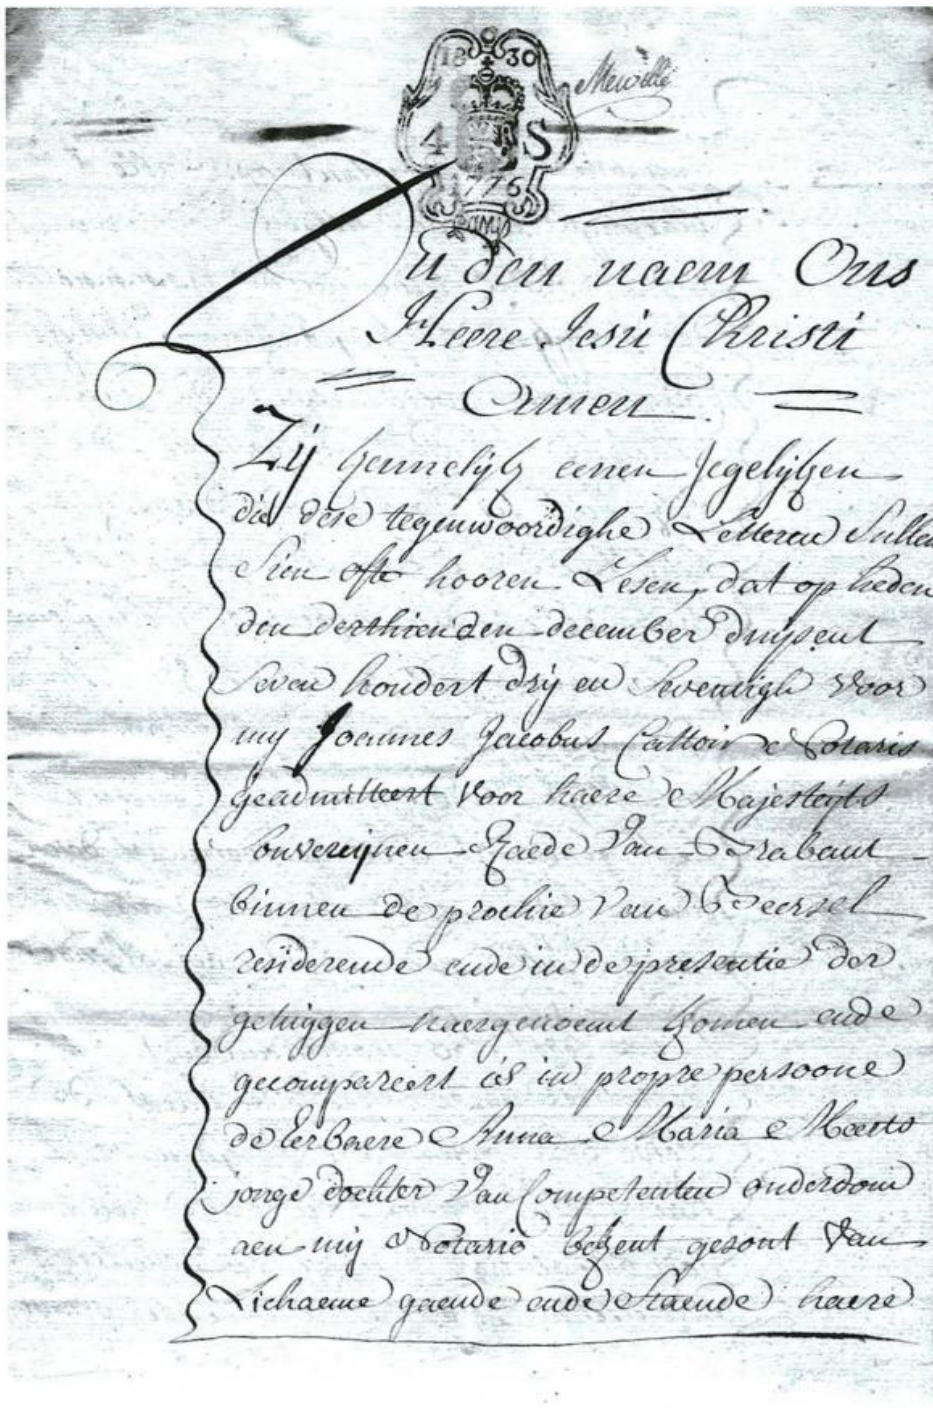 1830
4 S
1776
In den naem Ons
Heere Jesu Christi
Amen
Zij kennelijk eenen jegelijken
die dese tegenwoordighe Letteren sullen
sien ofte hooren Lesen, dat op heden
den derthienden december duysent
seven hondert drij en seventigh voor
mij Joannes Jacobus Cattoir Notaris
geadmitteert voor haere Majesteyts
souvereijnen Raede van Brabant
binnen de prochie van Beersel
residerende ende in de presentie der
getuijgen naergenoemt komen ende
gecompareert is in propre persoone
de Eerbaere Anna Maria Meerts
jonge dochter van Competenten ouderdom
aen mij Notaris bekent gesont van
Lichaeme gaende ende staende haere